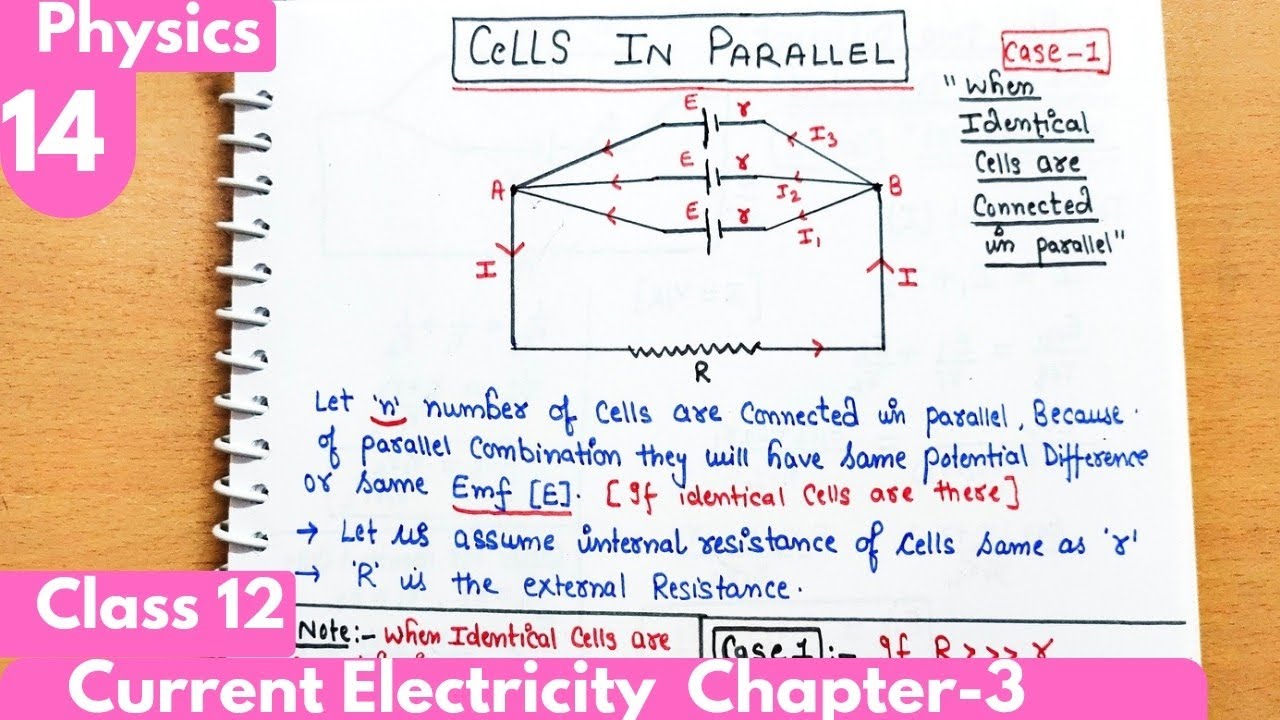 Physics
14
CELLS IN PARALLEL
Case-1
"When
Identical
Cells are
Connected
in parallel"
E r I3
E r I2
E r I1
A B
I I
R
Let 'n' number of cells are connected in parallel, Because
of parallel combination they will have same potential Difference
or same Emf [E]. [If identical cells are there]
→ Let us assume internal resistance of cells same as 'r'
→ 'R' is the external Resistance.
Note:- When Identical Cells are
Case 1:- If R >>> r
Class 12
Current Electricity Chapter-3